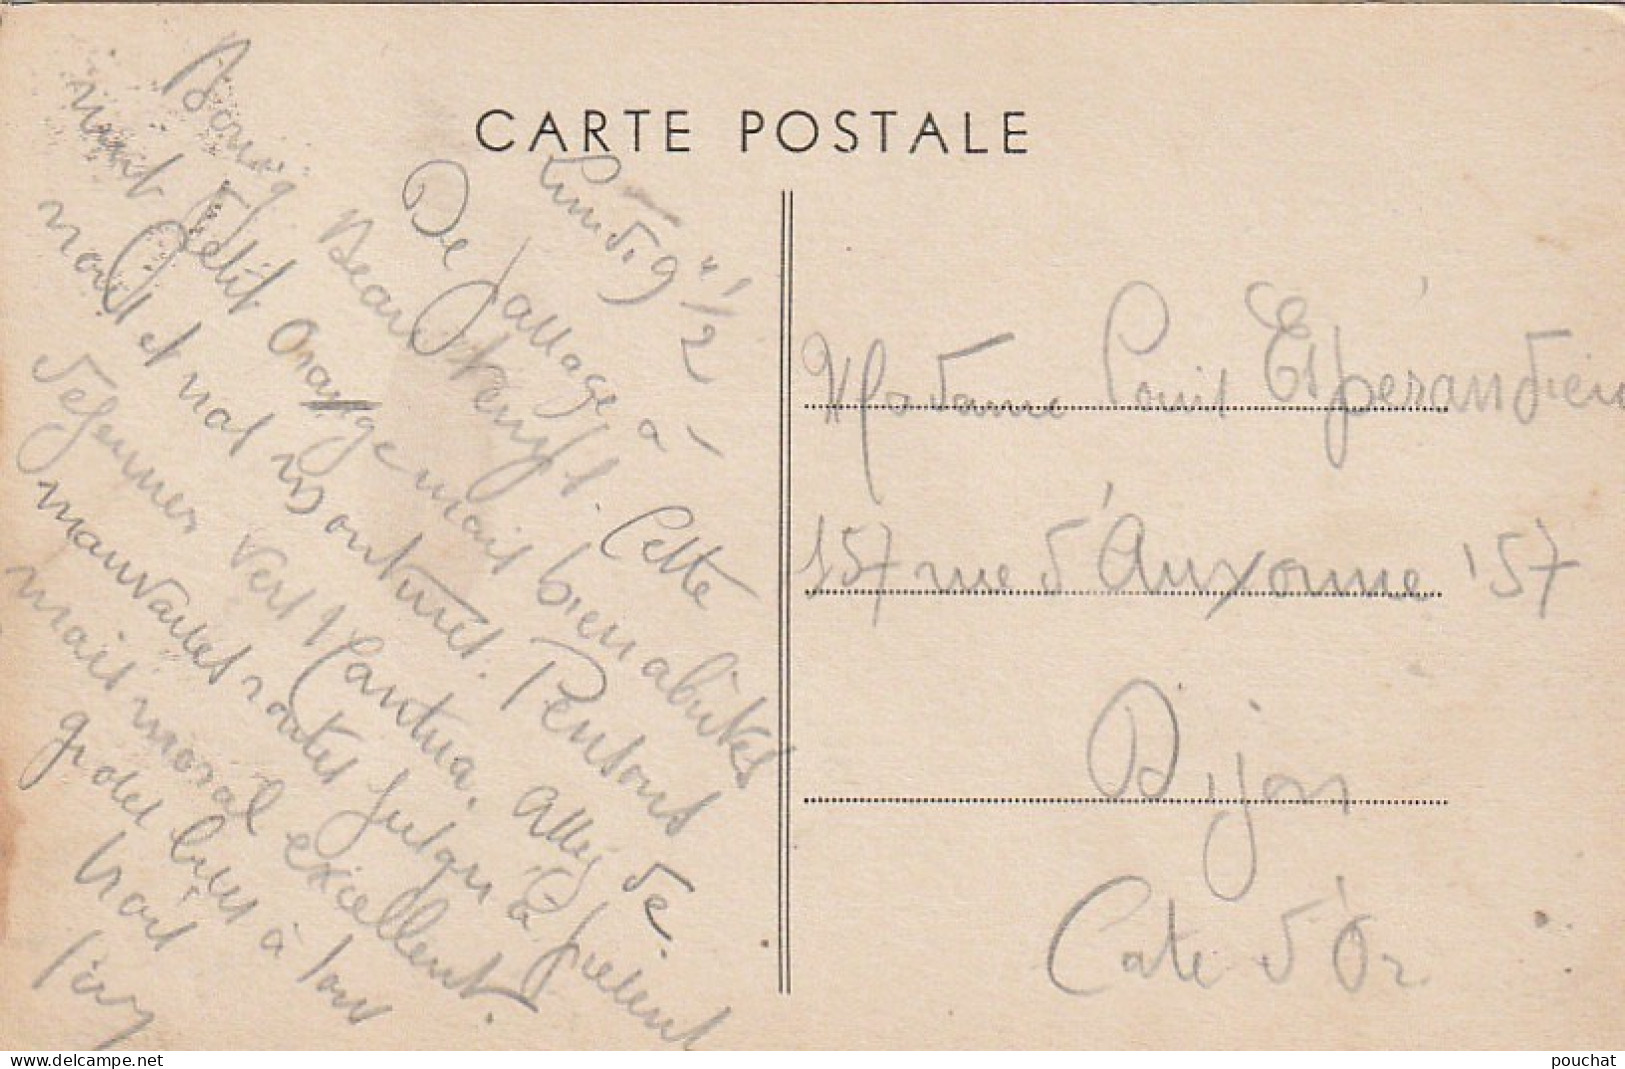 CARTE POSTALE
Lundi 9 h 1/2
De passage à
Bourg Beau temps. Cette
nuit Petit Orange mais bien abrités
nous et nos voitures. Pensons
déjeuner vers Nantua. Allez de
mauvaises routes jusqu'à présent
mais moral excellent.
grosses bises à tous
trois
Madame Louis Espérandieu
157 rue d'Auxonne 157
Dijon
Cote d'Or
www.delcampe.net
pouchat